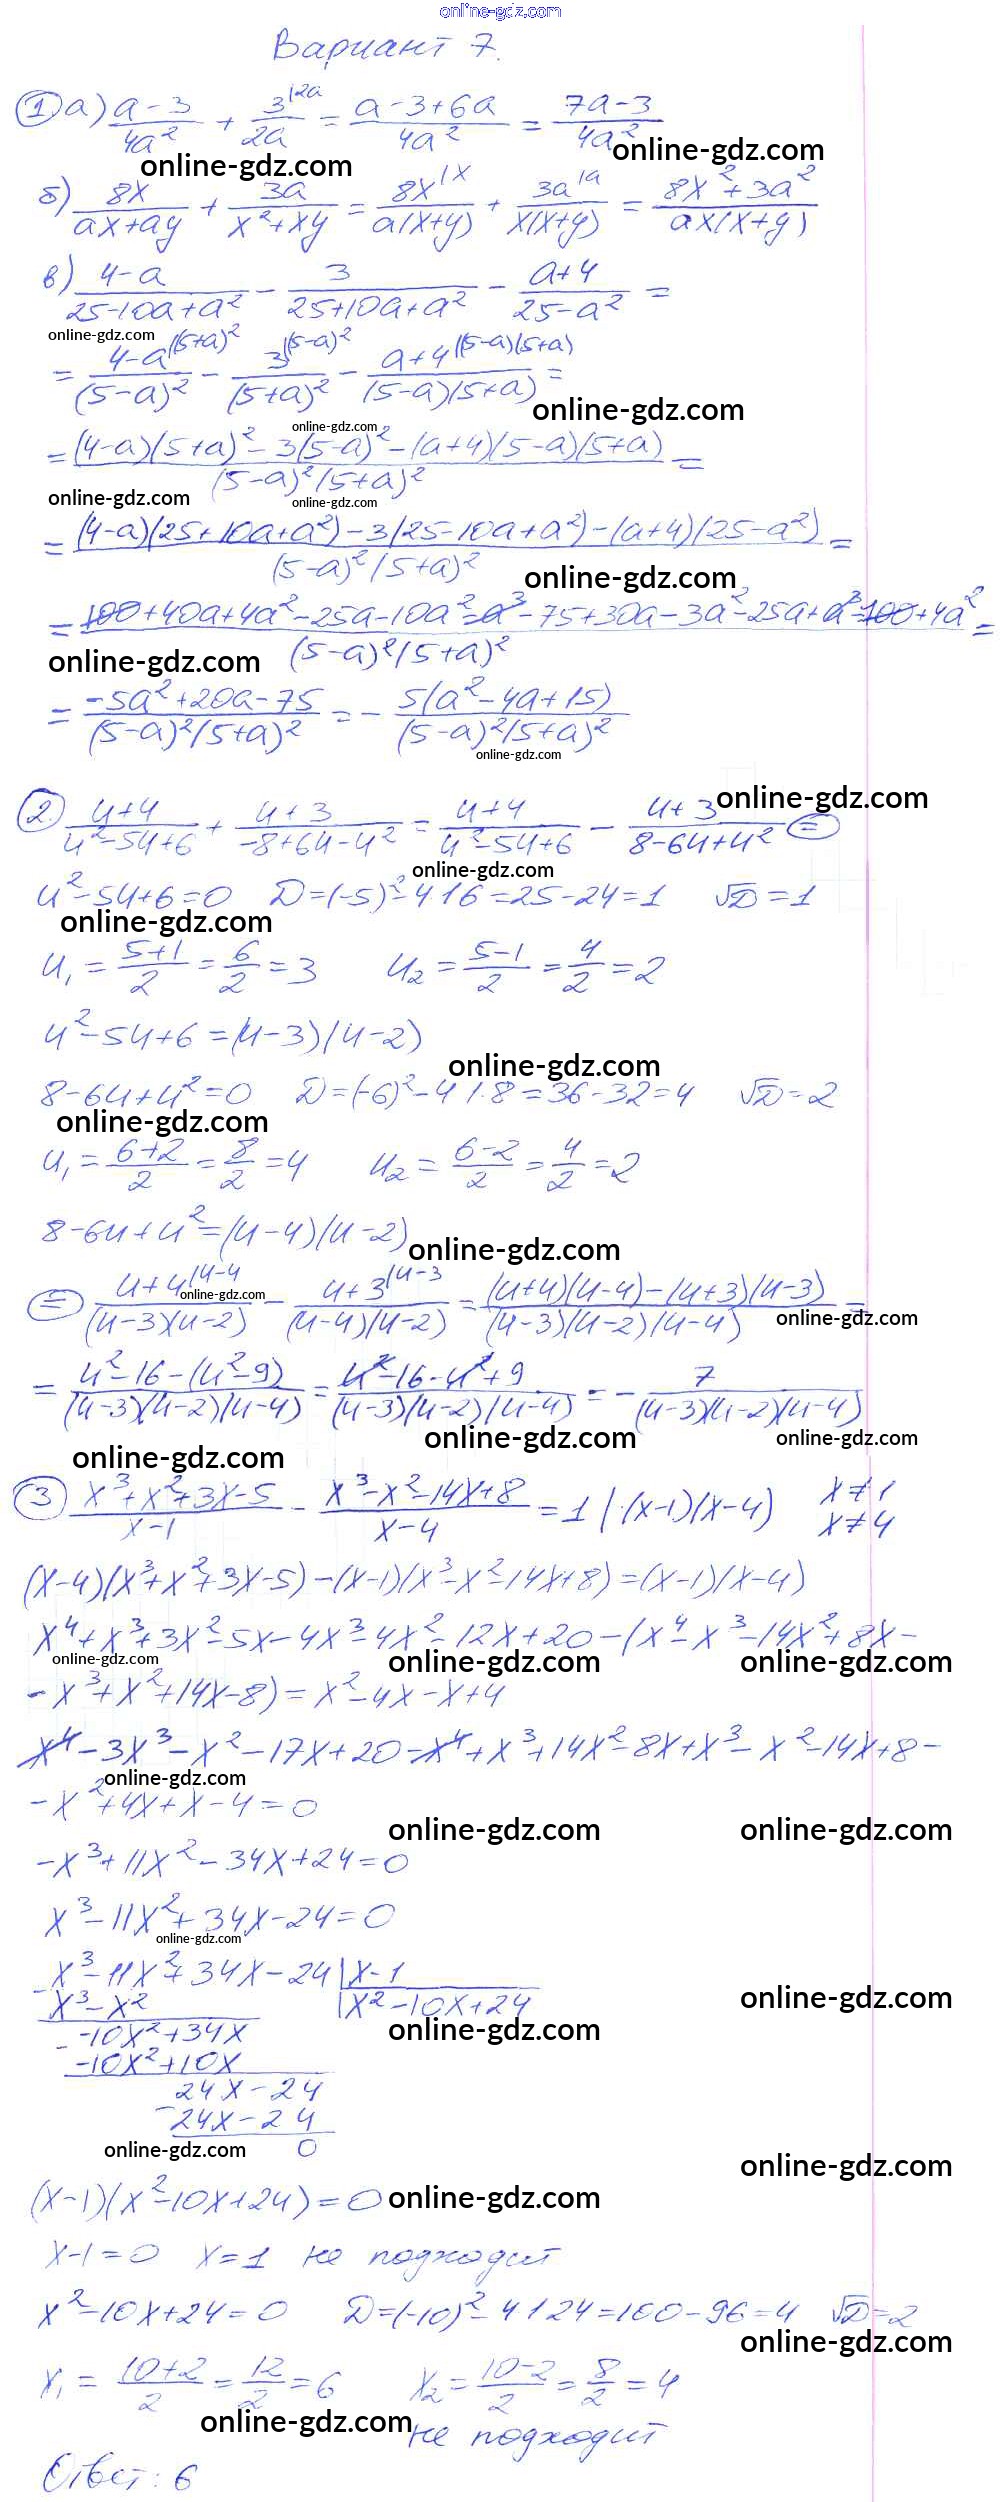 online-gdz.com
Вариант 7.
1 а) (a-3)/(4a²) + 3^{|2a}/(2a) = (a-3+6a)/(4a²) = (7a-3)/(4a²)
online-gdz.com online-gdz.com
б) 8x/(ax+ay) + 3a/(x²+xy) = 8x^{|x}/(a(x+y)) + 3a^{|a}/(x(x+y)) = (8x²+3a²)/(ax(x+y))
в) (4-a)/(25-10a+a²) - 3/(25+10a+a²) - (a+4)/(25-a²) =
online-gdz.com
= (4-a)^{|(5+a)²}/(5-a)² - 3^{|(5-a)²}/(5+a)² - (a+4)^{|(5-a)(5+a)}/((5-a)(5+a)) =
online-gdz.com
online-gdz.com
= ((4-a)(5+a)² - 3(5-a)² - (a+4)(5-a)(5+a))/((5-a)²(5+a)²) =
online-gdz.com online-gdz.com
= ((4-a)(25+10a+a²) - 3(25-10a+a²) - (a+4)(25-a²))/((5-a)²(5+a)²) =
online-gdz.com
= (100+40a+4a²-25a-10a²-a³-75+30a-3a²-25a+a³-100+4a²)/((5-a)²(5+a)²) =
online-gdz.com
= (-5a²+20a-75)/((5-a)²(5+a)²) = - 5(a²-4a+15)/((5-a)²(5+a)²)
online-gdz.com
2. (u+4)/(u²-5u+6) + (u+3)/(-8+6u-u²) = (u+4)/(u²-5u+6) - (u+3)/(8-6u+u²) =
online-gdz.com
online-gdz.com
u²-5u+6=0 D=(-5)²-4·1·6=25-24=1 √D=1
online-gdz.com
u₁ = (5+1)/2 = 6/2 = 3 u₂ = (5-1)/2 = 4/2 = 2
u²-5u+6=(u-3)(u-2)
online-gdz.com
8-6u+u²=0 D=(-6)²-4·1·8=36-32=4 √D=2
online-gdz.com
u₁ = (6+2)/2 = 8/2 = 4 u₂ = (6-2)/2 = 4/2 = 2
8-6u+u²=(u-4)(u-2)
online-gdz.com
= (u+4)^{|u-4}/((u-3)(u-2)) - (u+3)^{|u-3}/((u-4)(u-2)) = ((u+4)(u-4)-(u+3)(u-3))/((u-3)(u-2)(u-4)) =
online-gdz.com online-gdz.com
= (u²-16-(u²-9))/((u-3)(u-2)(u-4)) = (u²-16-u²+9)/((u-3)(u-2)(u-4)) = - 7/((u-3)(u-2)(u-4))
online-gdz.com online-gdz.com online-gdz.com
3 (x³+x²+3x-5)/(x-1) - (x³-x²-14x+8)/(x-4) = 1 |·(x-1)(x-4) x≠1
x≠4
(x-4)(x³+x²+3x-5)-(x-1)(x³-x²-14x+8)=(x-1)(x-4)
x⁴+x³+3x²-5x-4x³-4x²-12x+20-(x⁴-x³-14x²+8x-
online-gdz.com online-gdz.com online-gdz.com
-x³+x²+14x-8)=x²-4x-x+4
x⁴-3x³-x²-17x+20-x⁴+x³+14x²-8x+x³-x²-14x+8-
online-gdz.com
-x²+4x+x-4=0
online-gdz.com online-gdz.com
-x³+11x²-34x+24=0
x³-11x²+34x-24=0
online-gdz.com
x³-11x²+34x-24 | x-1
- x³-x² | x²-10x+24
online-gdz.com online-gdz.com
- -10x²+34x
-10x²+10x
24x-24
- 24x-24
0
online-gdz.com online-gdz.com
(x-1)(x²-10x+24)=0
online-gdz.com
x-1=0 x=1 не подходит
x²-10x+24=0 D=(-10)²-4·1·24=100-96=4 √D=2
online-gdz.com
x₁ = (10+2)/2 = 12/2 = 6 x₂ = (10-2)/2 = 8/2 = 4
online-gdz.com
не подходит
Ответ: 6